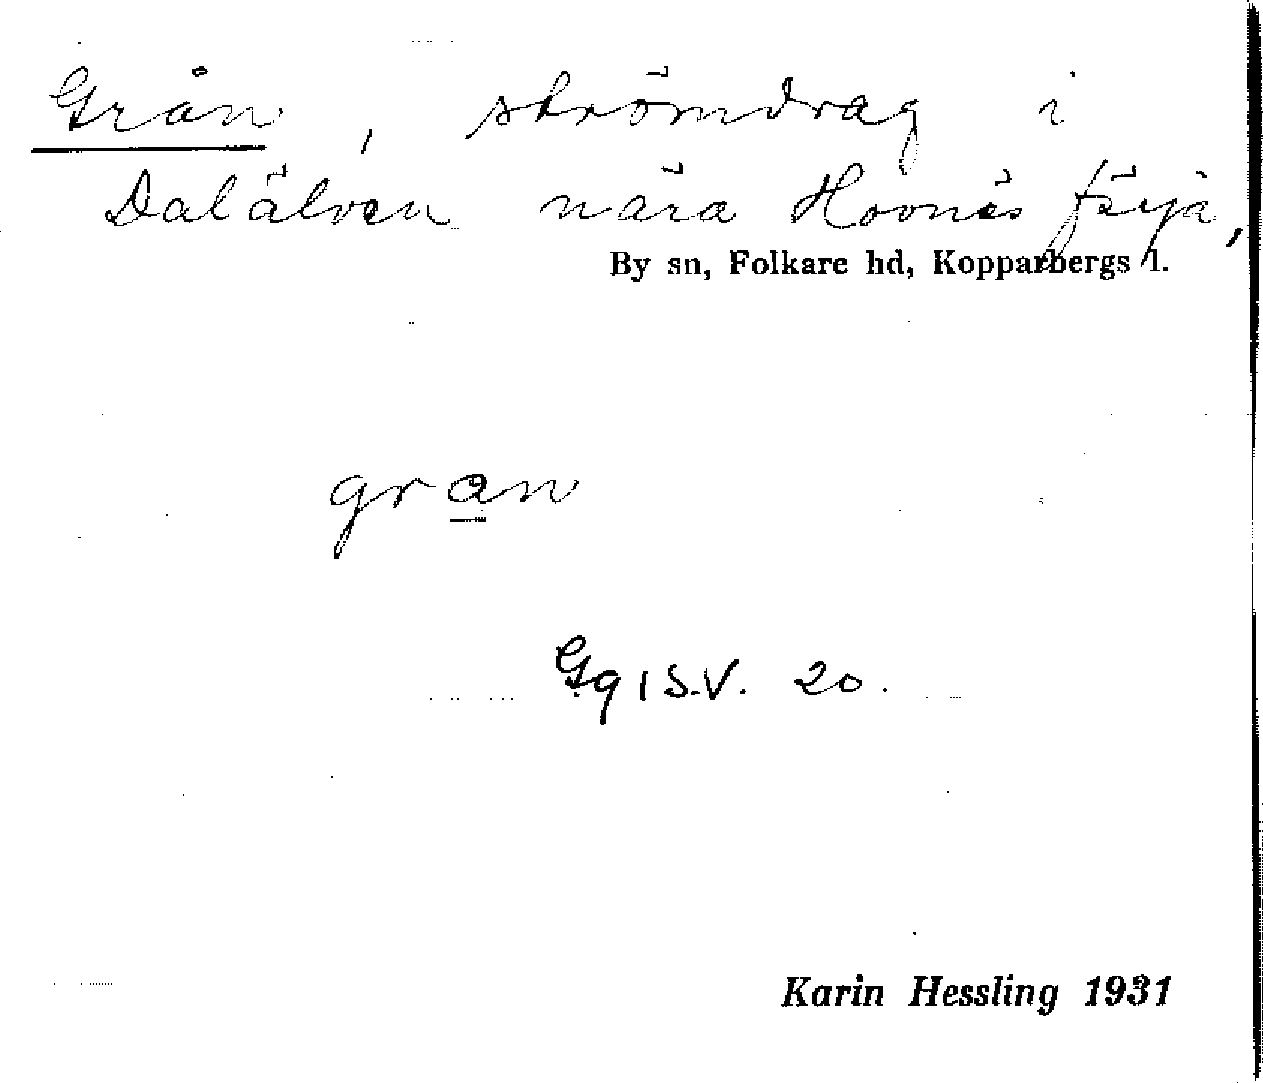 Grån, strömdrag i
Dalälven nära Hovnäs färja,
By sn, Folkare hd, Kopparbergs l.
gran
Gq 1 S.V. 20.
Karin Hessling 1931